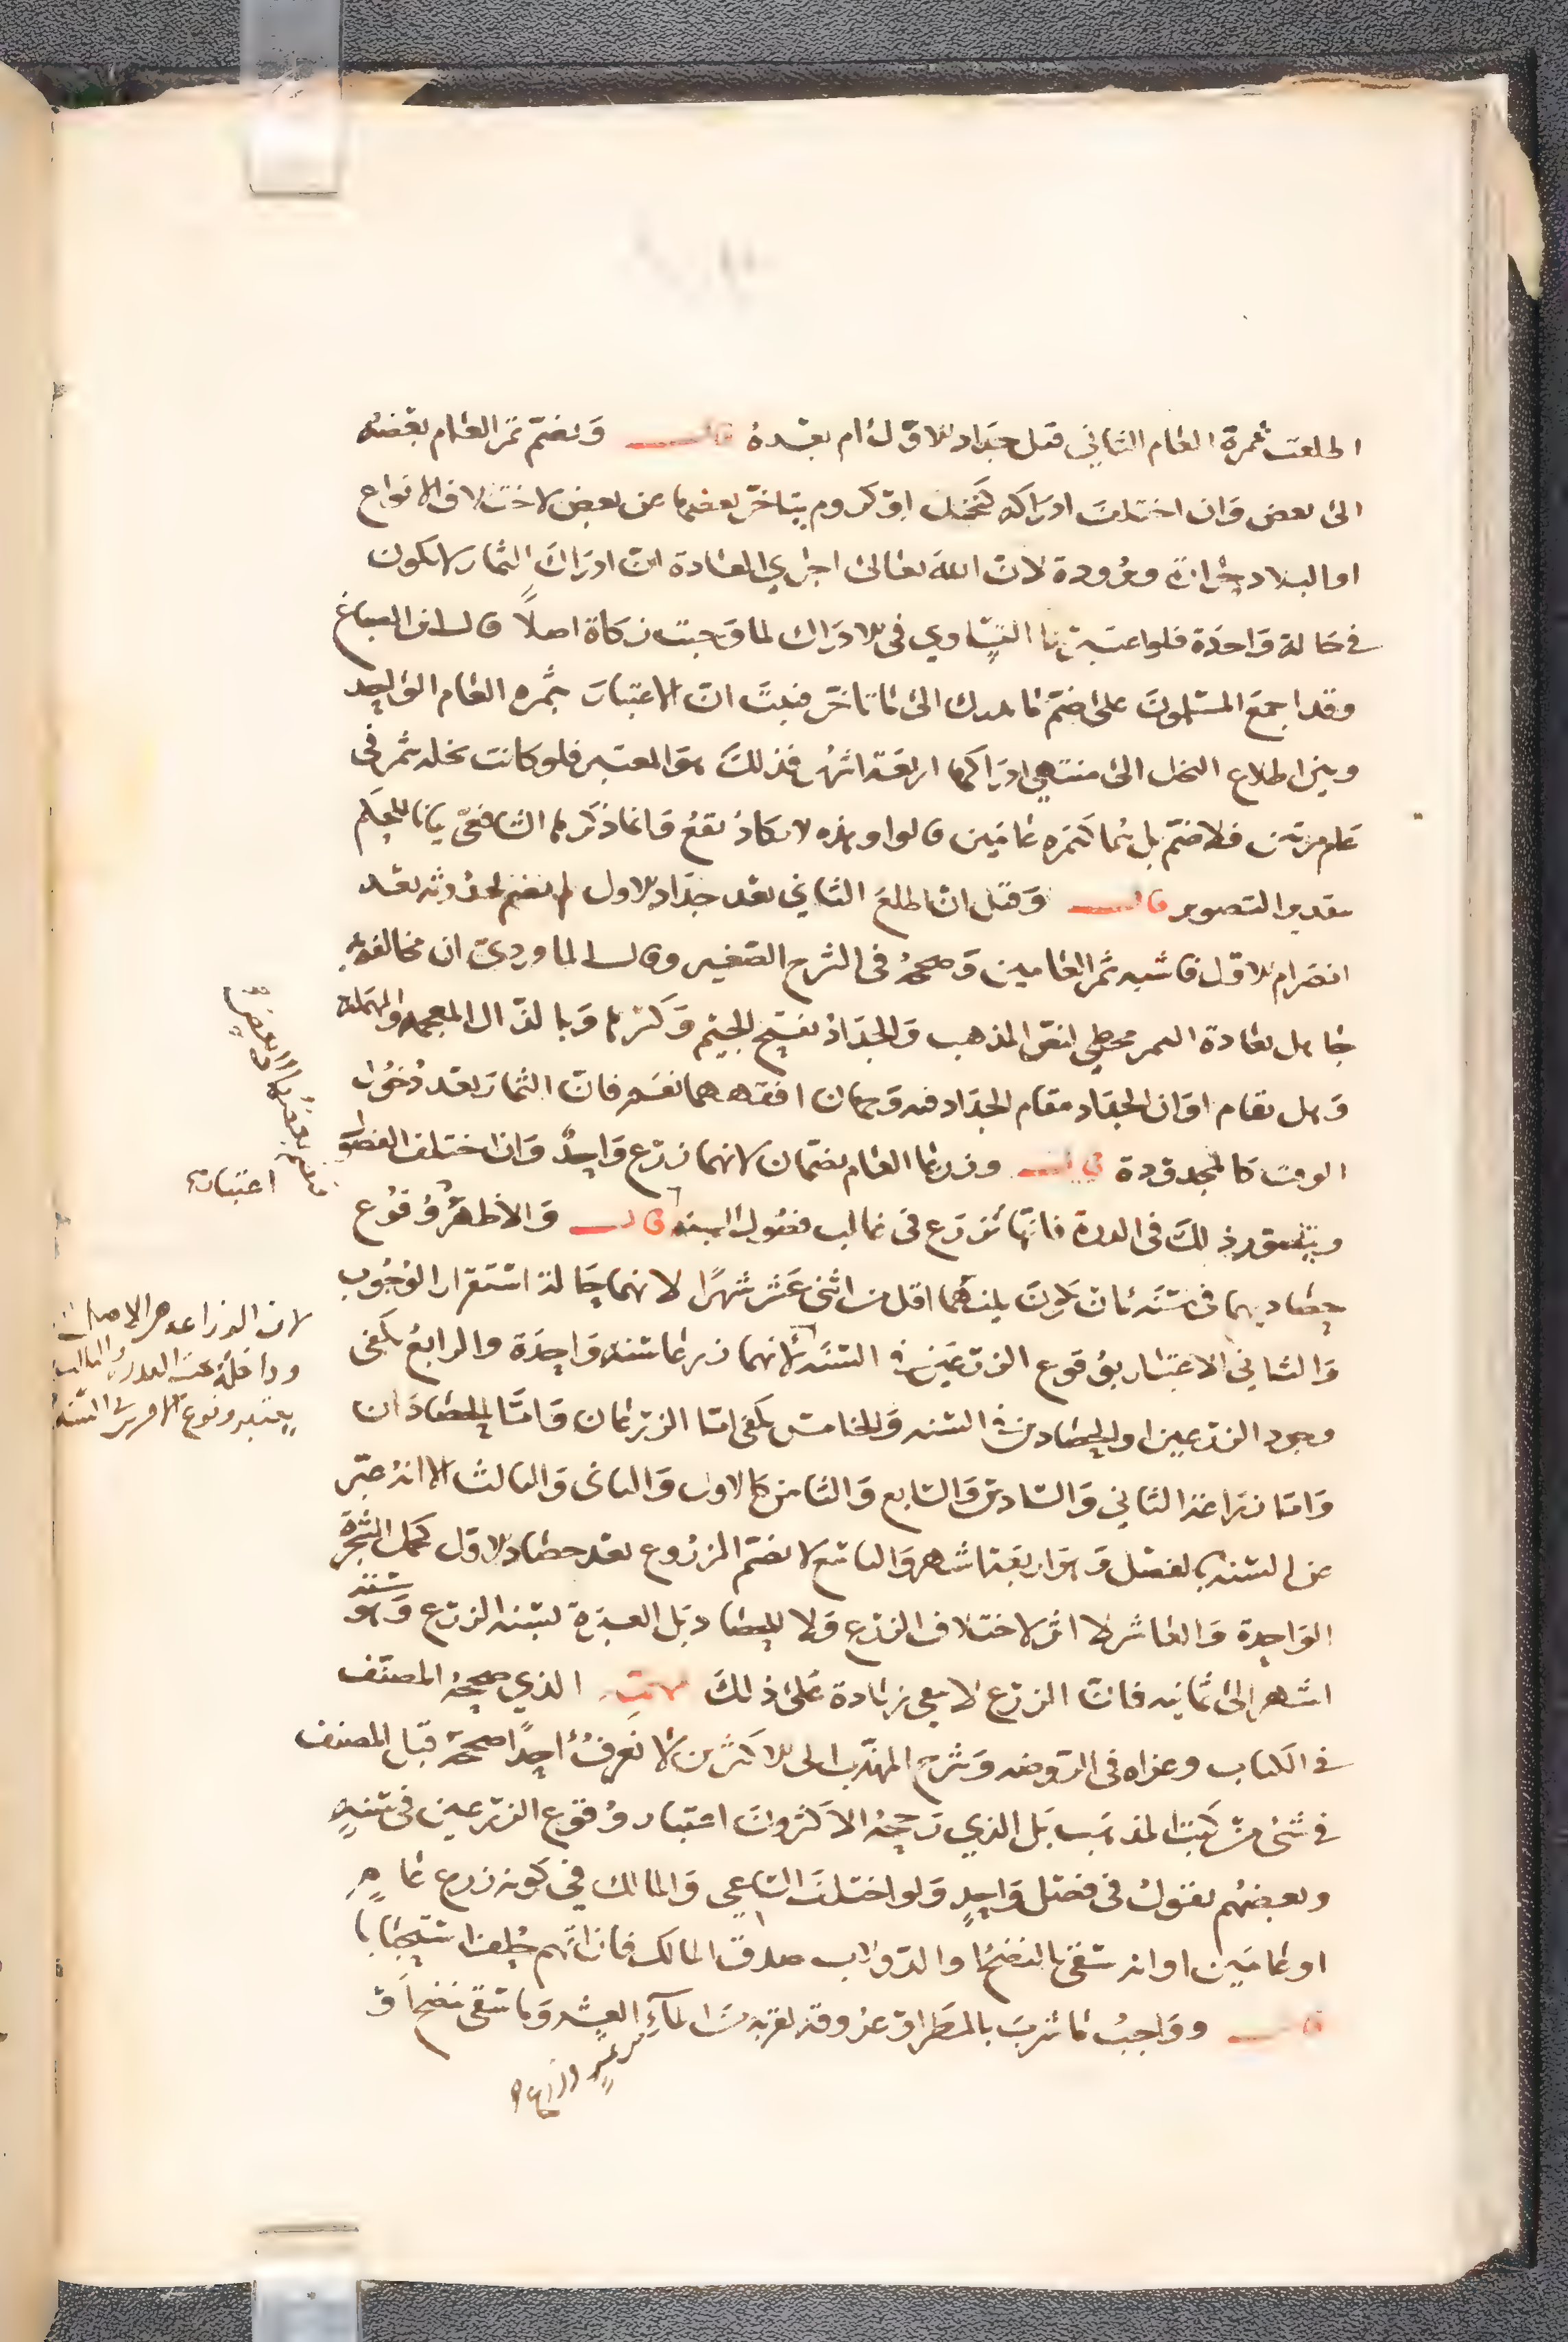 اطلعت ثمرة العام الثاني قبل جداد الاول ام بعده قال ويضم ثمر العام بعضه
الى بعض وان اختلف ادراكه كنخل او كروم يتاخر بعضها عن بعض لاختلاف الانواع
او البلاد حرارة وبرودة لان الله تعالى اجرى العادة ان ادراك الثمار لا يكون
في حالة واحدة فلو اعتبرنا التساوي في الادراك لما وجبت زكاة اصلا قال ابن الصباغ
وقد اجمع المسلمون على ضم ما يدرك الى ما تاخر فثبت ان الاعتبار بثمره العام الواحد
وبين اطلاع النخل الى منتهى ادراكها اربعة اشهر فذلك هو المعتبر فلو كانت نخله تثمر في
عام مرتين فلا ضم بل هما كثمره عامين قالوا وهذه لا يكاد يقع وانما ذكرها الشافعي بيانا للحكم
بتقدير التصوير قال وقيل ان طلع الثاني بعد جداد الاول لم يضم لحدوثه بعد
انصرام الاول فاشبه ثمر العامين وصححه في الشرح الصغير وقال الماوردي ان مخالفه
جاهل بعادة الثمر مخطي لنص المذهب والجداد بفتح الجيم وكسرها وبالذال المعجمه والمهملة
وهل يقام اوان الجداد مقام الجداد فيه وجهان افقههما نعم فان الثمار بعد دخول
الوقت كالمجدودة قال وزرعا العام يضمان لانهما زرع واحد وان اختلف الفصول
ويتصور ذلك في الذرة فانها تزرع في غالب فصول السنه قال والاظهر وقوع
حصاديهما في سنة بان يكون بينهما اقل من اثنى عشر شهرا لانهما حالة استقرار الوجوب
والثاني الاعتبار بوقوع الزرعين في السنة لانهما زرعا سنه واحدة والرابع يكفى
وجود الزرعين او الحصادين في السنه والخامس يكفى اما الزرعان واما الحصادان
واما زراعة الثاني والسادس والسابع والثامن كالاول والثاني والثالث الا انه عبر
عن السنه بالفصل وهو اربعة اشهر والتاسع لا يضم المزروع بعد حصاد الاول كحمل الشجرة
الواحدة والعاشر لا اثر لاختلاف الزرع ولا للحصاد بل العبرة لسنه الزرع وهو ستة
اشهر الى ثمانيه فان الزرع لا يبقى زيادة على ذلك تنبيه الذي صححه المصنف
في الكتاب وعزاه في الروضه وشرح المهذب الى الاكثرين لا نعرف احدا صححه قبل المصنف
في شئ من كتب المذهب بل الذي رجحه الاكثرون اعتبار وقوع الزرعين في سنه
وبعضهم يقول في فصل واحد ولو اختلف الساعي والمالك في كونه زرع عام
او عامين او انه سقى بالنضح او الدولاب صدق المالك فان اتهم حلف استحبابا
قال وواجب ما شرب بالمطر او عروقه لقربه من الماء العشر وما سقى بنضح او
اعتبارا
لان الزراعه هي الاصل
وداخلة تحت القدرة والثالث
يعتبر وقوع الامرين في السنة